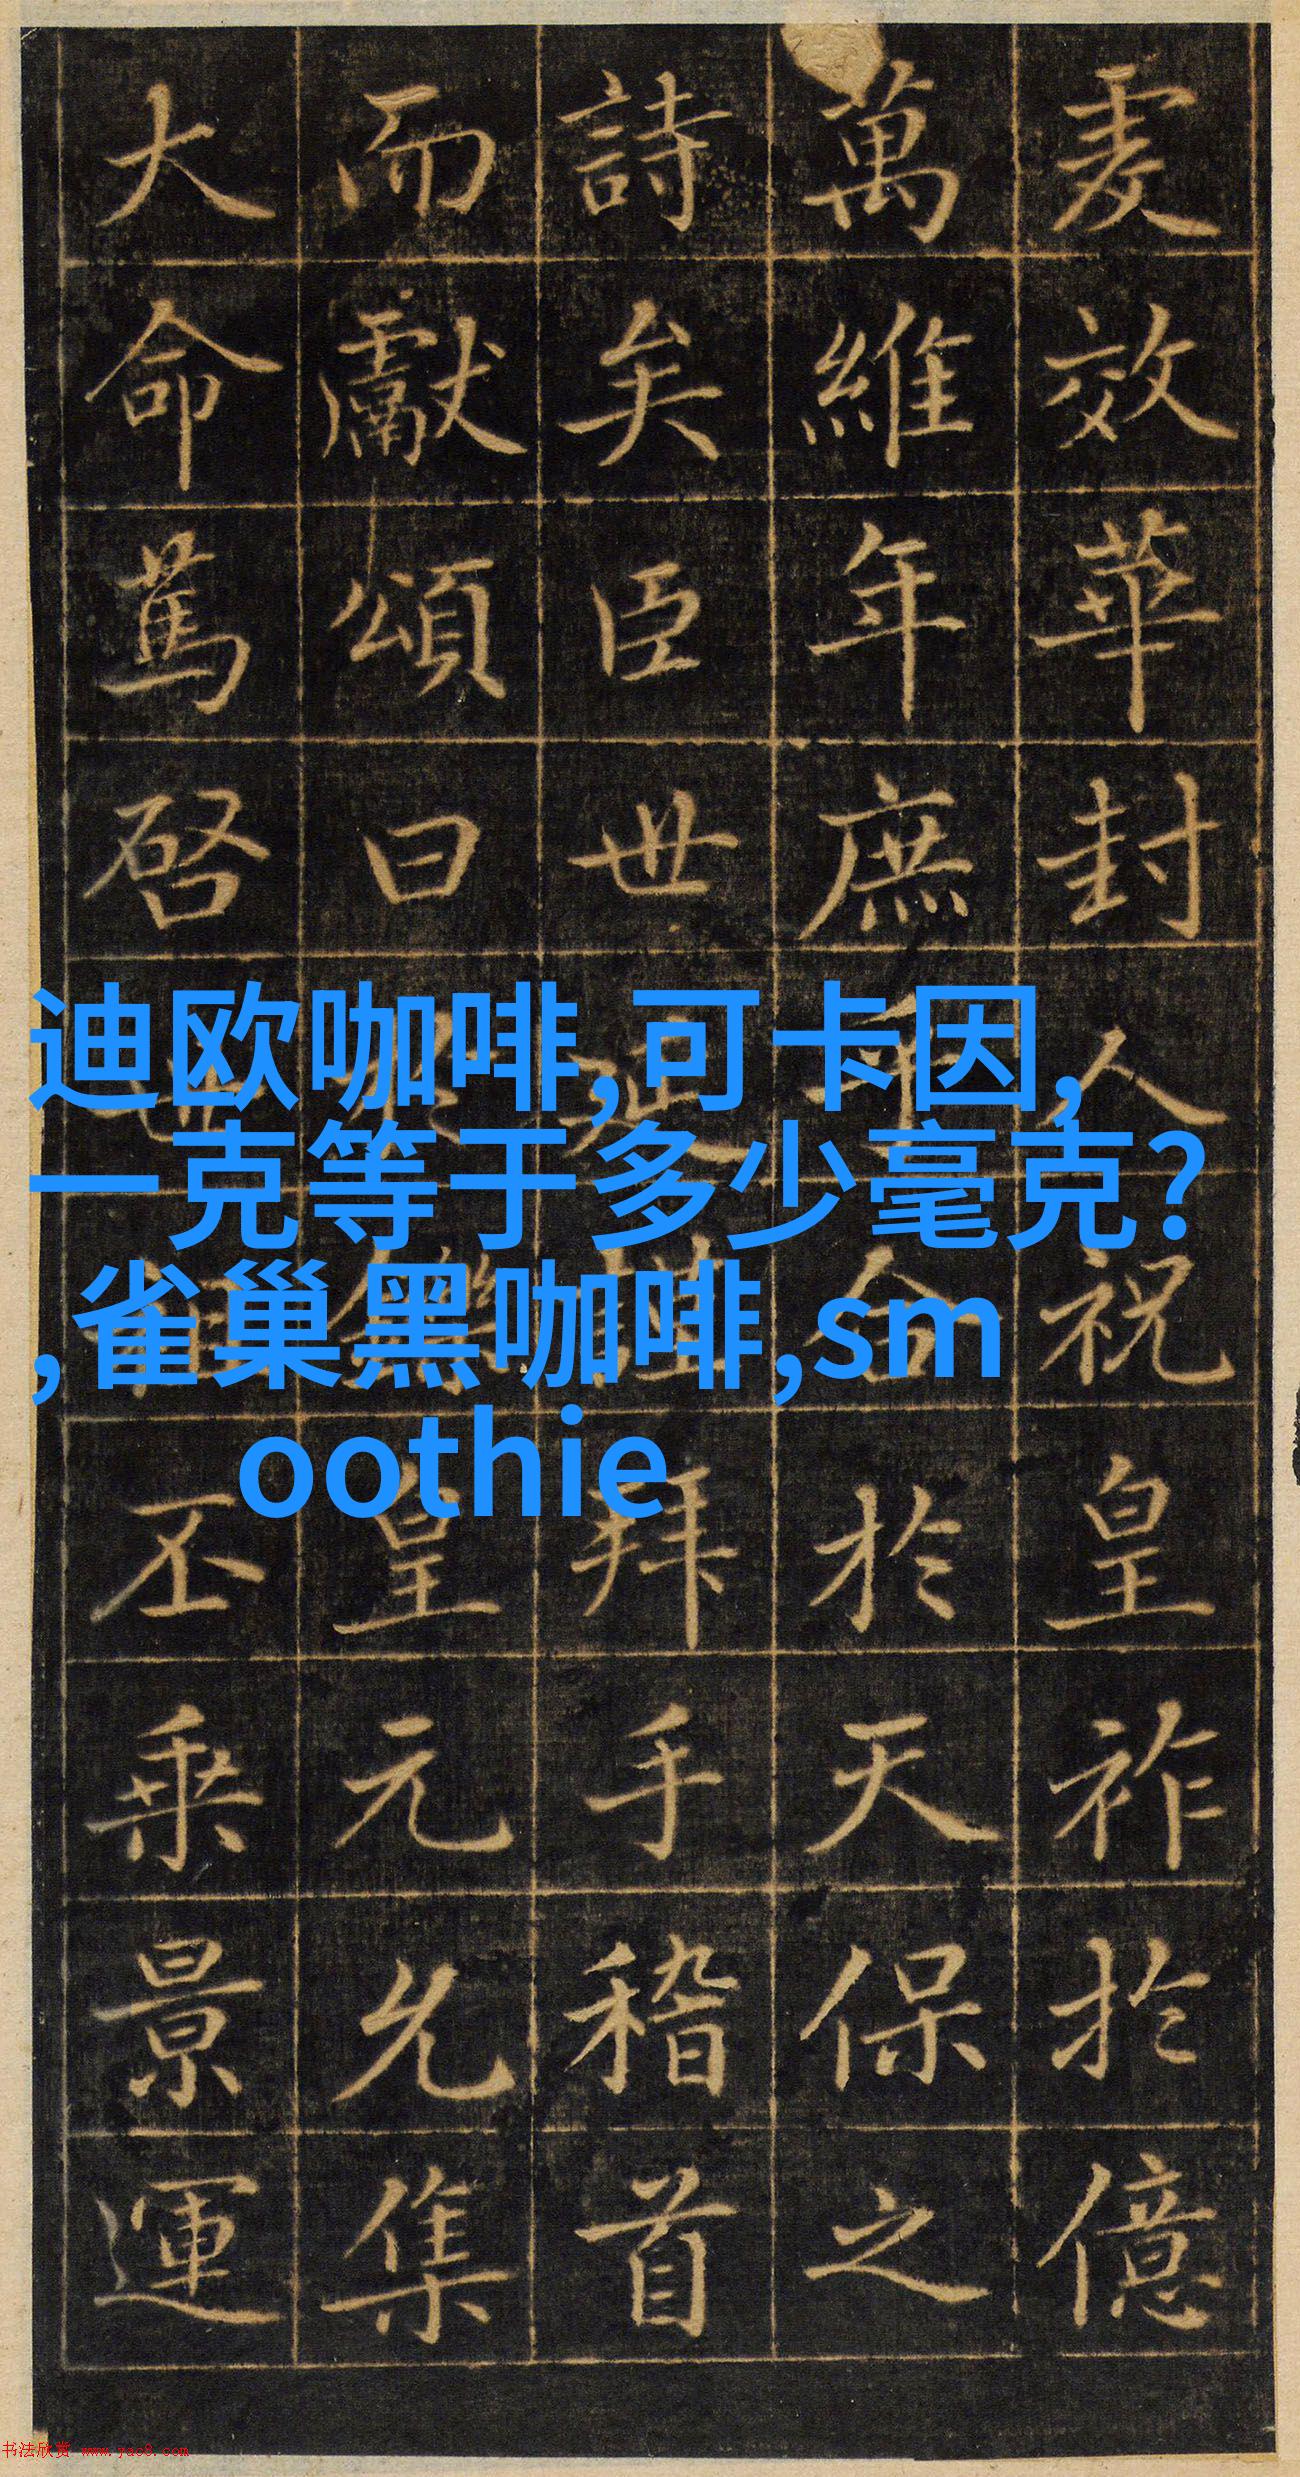 爰效華封人祝皇祚於億
萬維年庶乎合於天保之
詩矣臣世延謹拜手稽首
而獻頌曰鑠皇元允集
大命篤啓祖丕乘景運
迪欧咖啡,可卡因,
一克等于多少毫克?
,雀巢黑咖啡,sm
oothie
书法欣赏 www.yac8.com